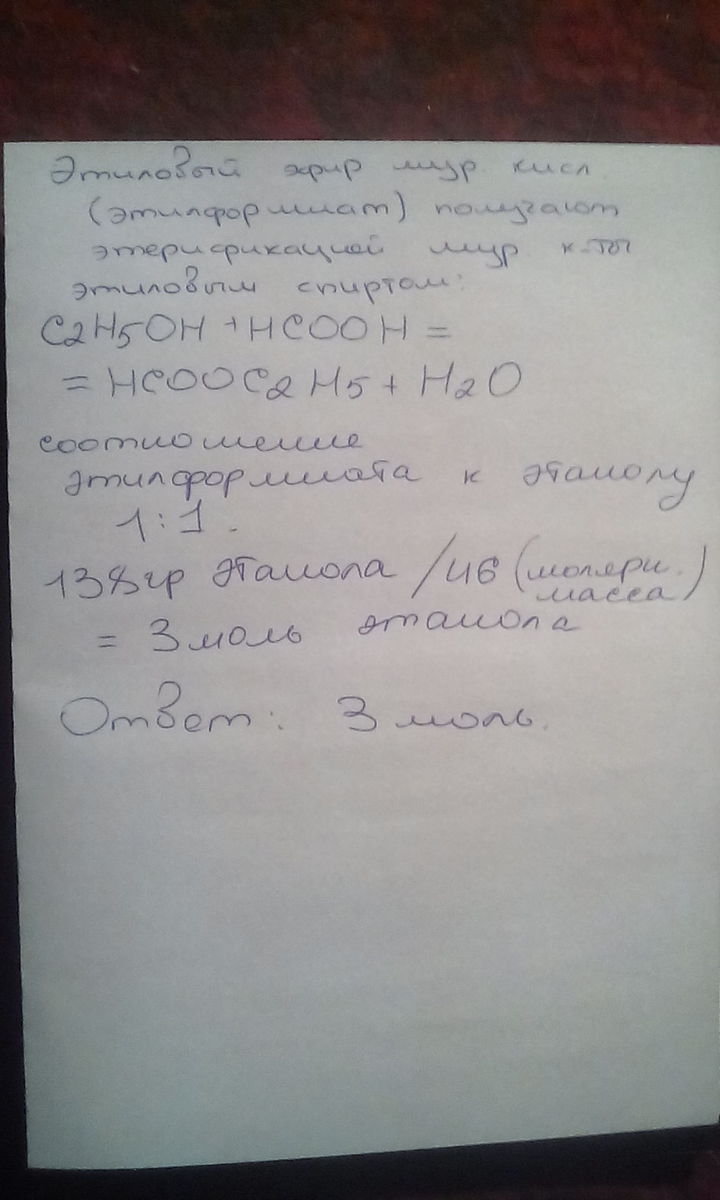 Этиловый эфир мур кисл.
(этилформиат) получают
этерификацией мур к-ты
этиловым спиртом:
C2H5OH + HCOOH =
= HCOOC2H5 + H2O
соотношение
этилформиата к этанолу
1:1.
138гр этанола /46 (молярн.
масса)
= 3 моль этанола
Ответ: 3 моль.